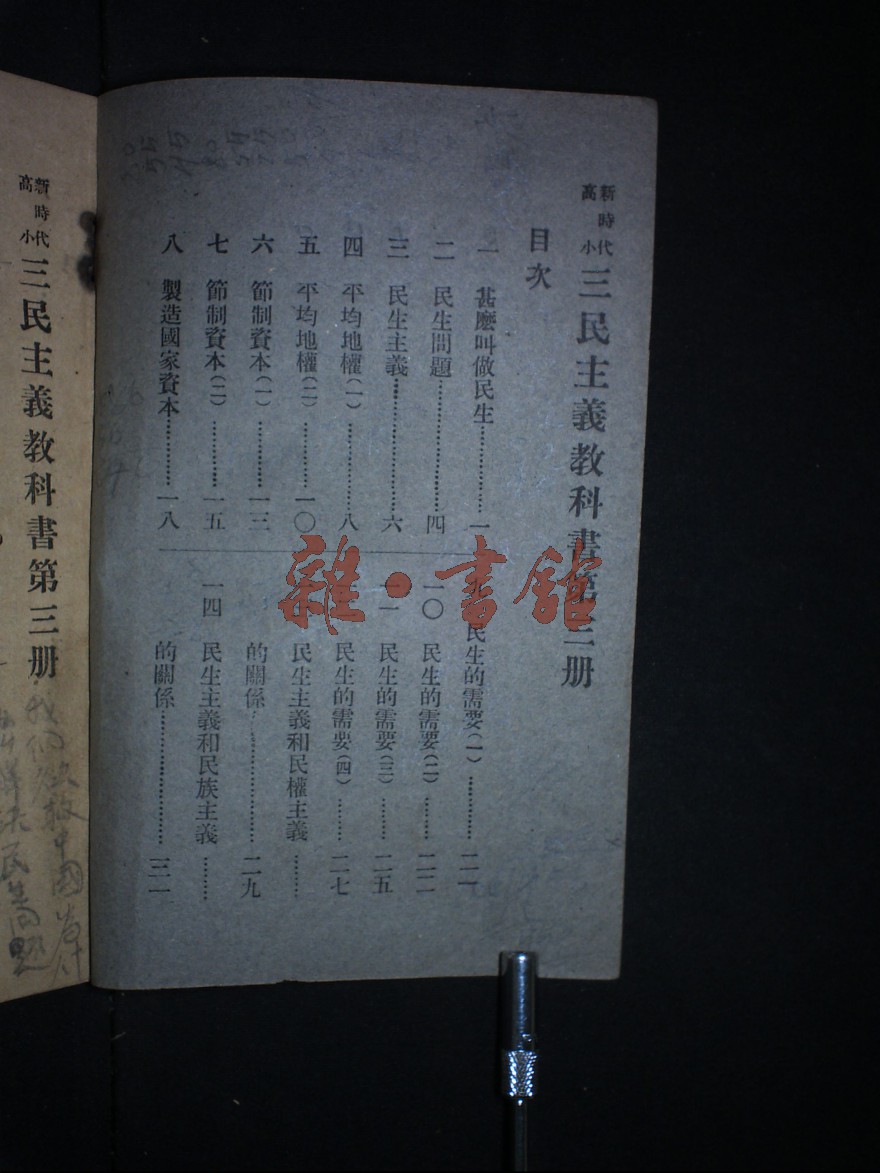 新時代
高小
三民主義教科書第三册
目次
一　甚麼叫做民生……………一
二　民生問題……………四
三　民生主義……………六
四　平均地權(一)……………八
五　平均地權(二)……………一〇
六　節制資本(一)……………一三
七　節制資本(二)……………一五
八　製造國家資本……………一八
民生的需要(一)……………二一
一〇　民生的需要(二)………二二
一一　民生的需要(三)………二五
民生的需要(四)………二七
民生主義和民權主義………
的關係……………二九
一四　民生主義和民族主義………
的關係……………三一
雜·書館
新時代
高小
三民主義教科書第三册
我們
中國
解決民生問題